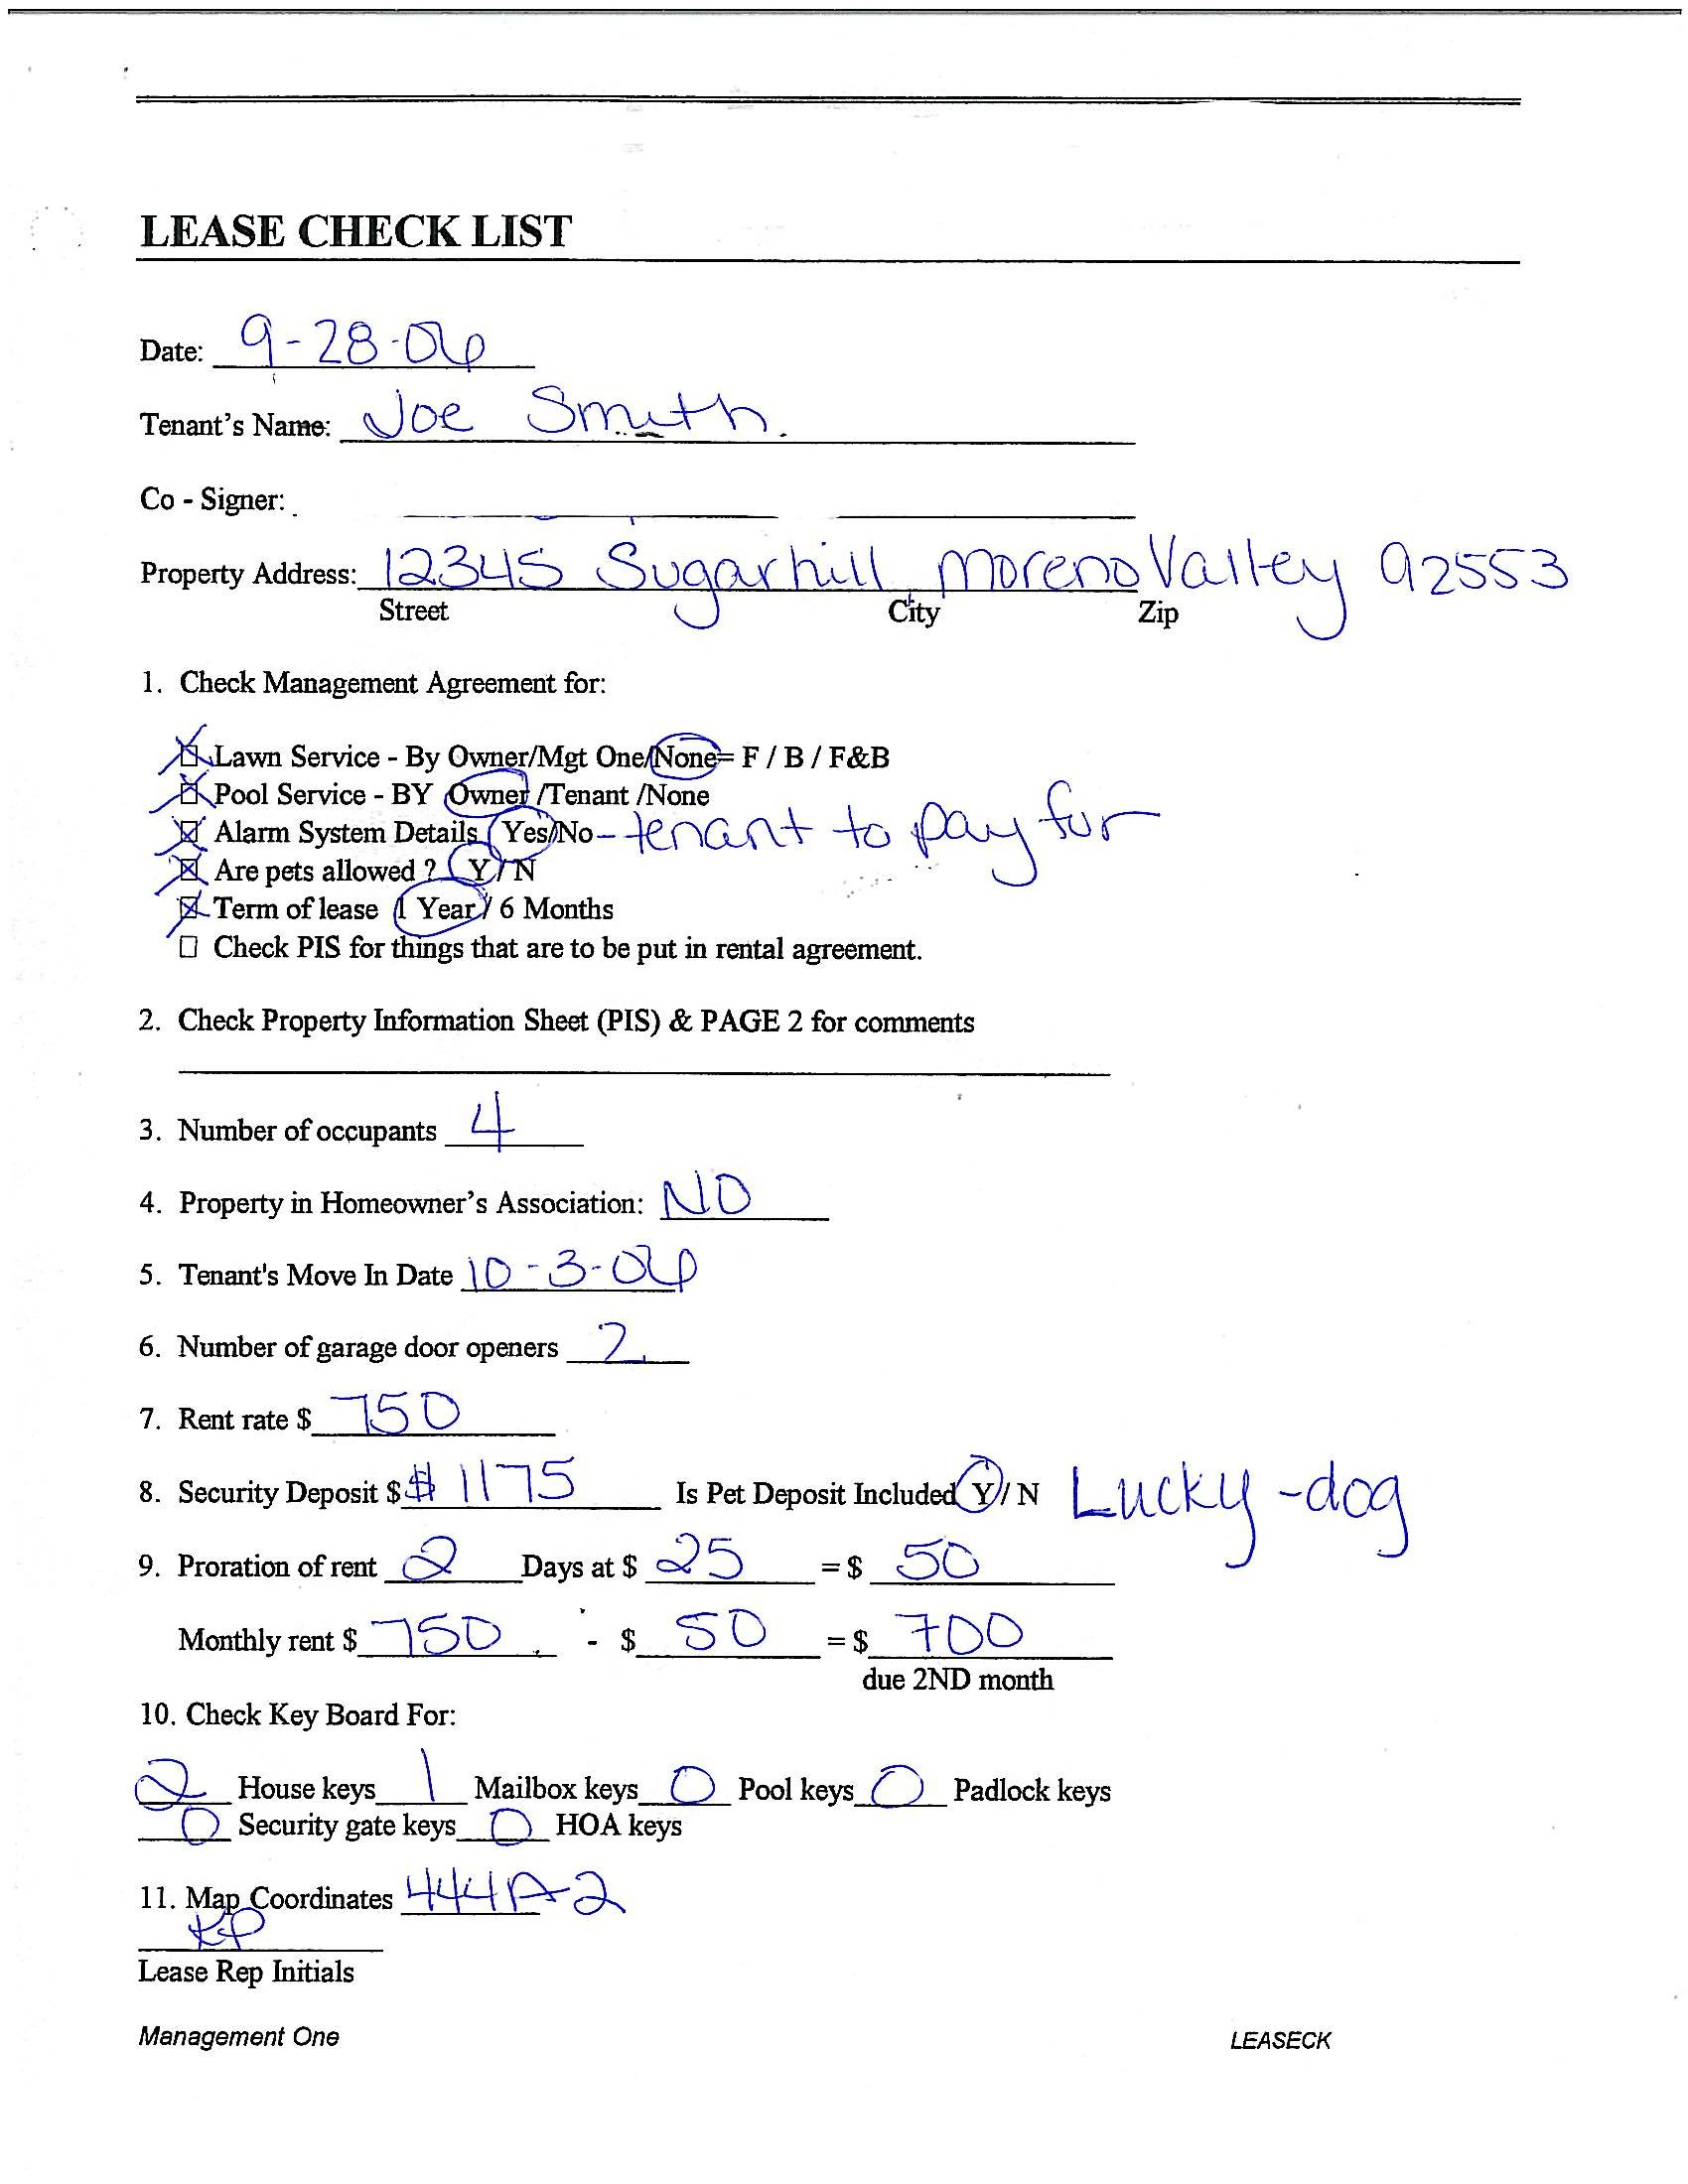 LEASE CHECK LIST
Date: 9-28-06
Tenant's Name: Joe Smith
Co - Signer:
Property Address: 12345 Sugarhill Moreno Valley 92553
Street City Zip
1. Check Management Agreement for:
☒ Lawn Service - By Owner/Mgt One/None= F / B / F&B
☒ Pool Service - BY Owner /Tenant /None
☒ Alarm System Details Yes/No - tenant to pay for
☒ Are pets allowed ? Y / N
☒ Term of lease 1 Year / 6 Months
☐ Check PIS for things that are to be put in rental agreement.
2. Check Property Information Sheet (PIS) & PAGE 2 for comments
3. Number of occupants 4
4. Property in Homeowner's Association: NO
5. Tenant's Move In Date 10-3-06
6. Number of garage door openers 2
7. Rent rate $ 750
8. Security Deposit $ $ 1175 Is Pet Deposit Included Y / N Lucky - dog
9. Proration of rent 2 Days at $ 25 = $ 50
Monthly rent $ 750 - $ 50 = $ 700
due 2ND month
10. Check Key Board For:
2 House keys 1 Mailbox keys 0 Pool keys 0 Padlock keys
0 Security gate keys 0 HOA keys
11. Map Coordinates 444A-2
KP
Lease Rep Initials
Management One LEASECK